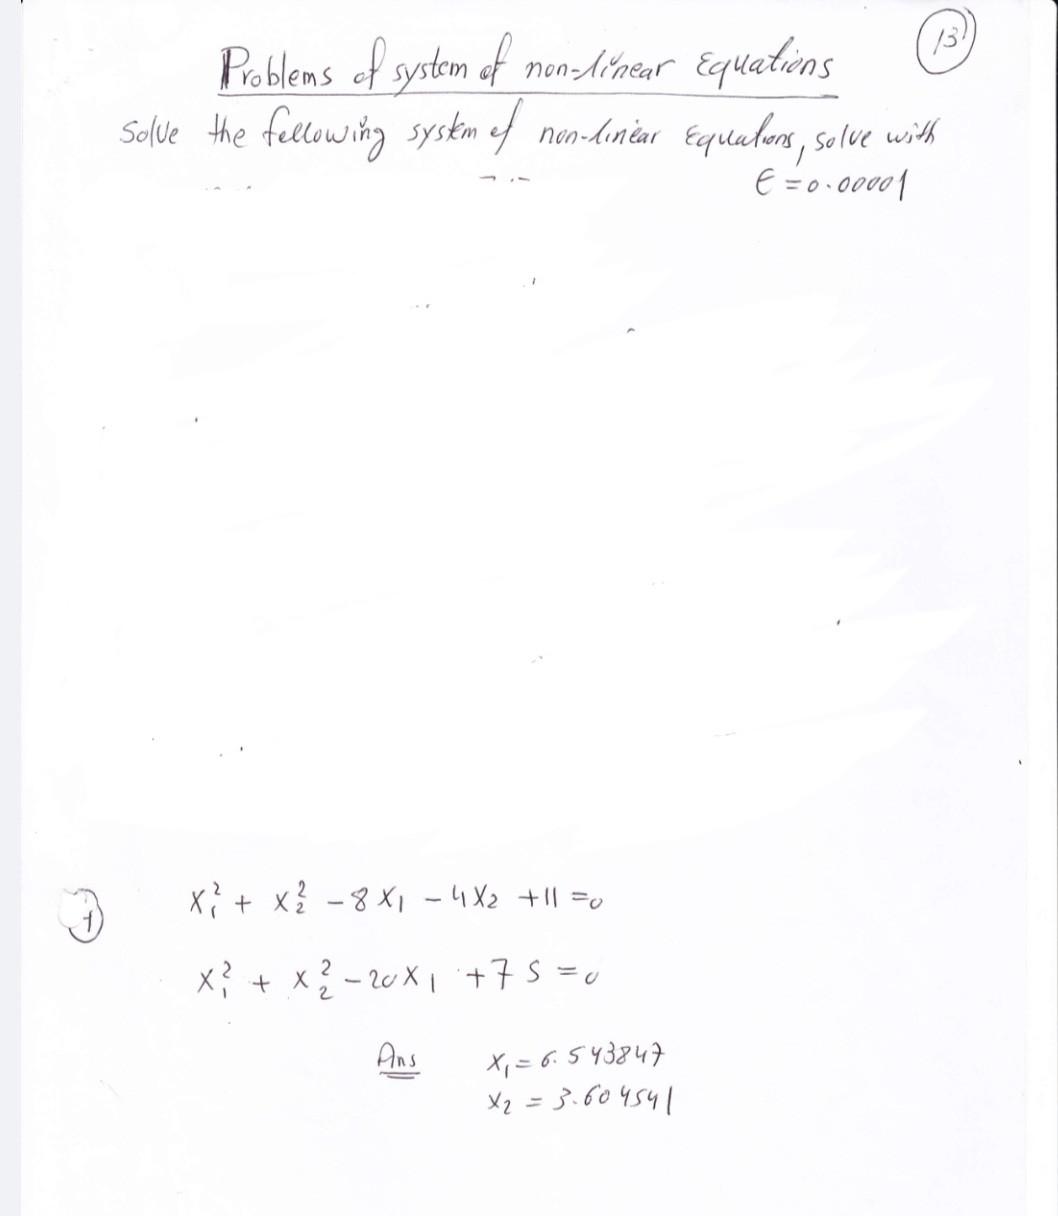 13
Problems of system of non-linear Equations
Solve the following system of non-linear Equations, solve with
ϵ = 0.00001
1 x₁² + x₂² - 8x₁ - 4x₂ + 11 = 0
x₁² + x₂² - 20x₁ + 75 = 0
Ans x₁ = 6.543847
x₂ = 3.604541